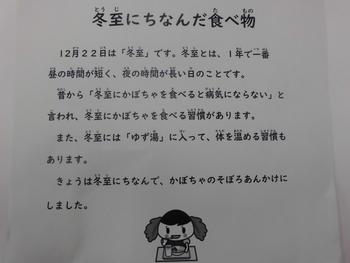 冬至にちなんだ食べ物
12月22日は「冬至」です。冬至とは、1年で一番
昼の時間が短く、夜の時間が長い日のことです。
昔から「冬至にかぼちゃを食べると病気にならない」と
言われ、冬至にかぼちゃを食べる習慣があります。
また、冬至には「ゆず湯」に入って、体を温める習慣も
あります。
きょうは冬至にちなんで、かぼちゃのそぼろあんかけに
しました。